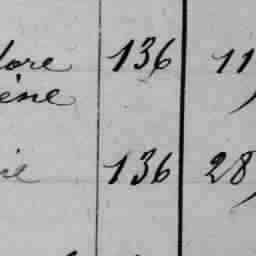 dore 136 11
ène
ie 136 28